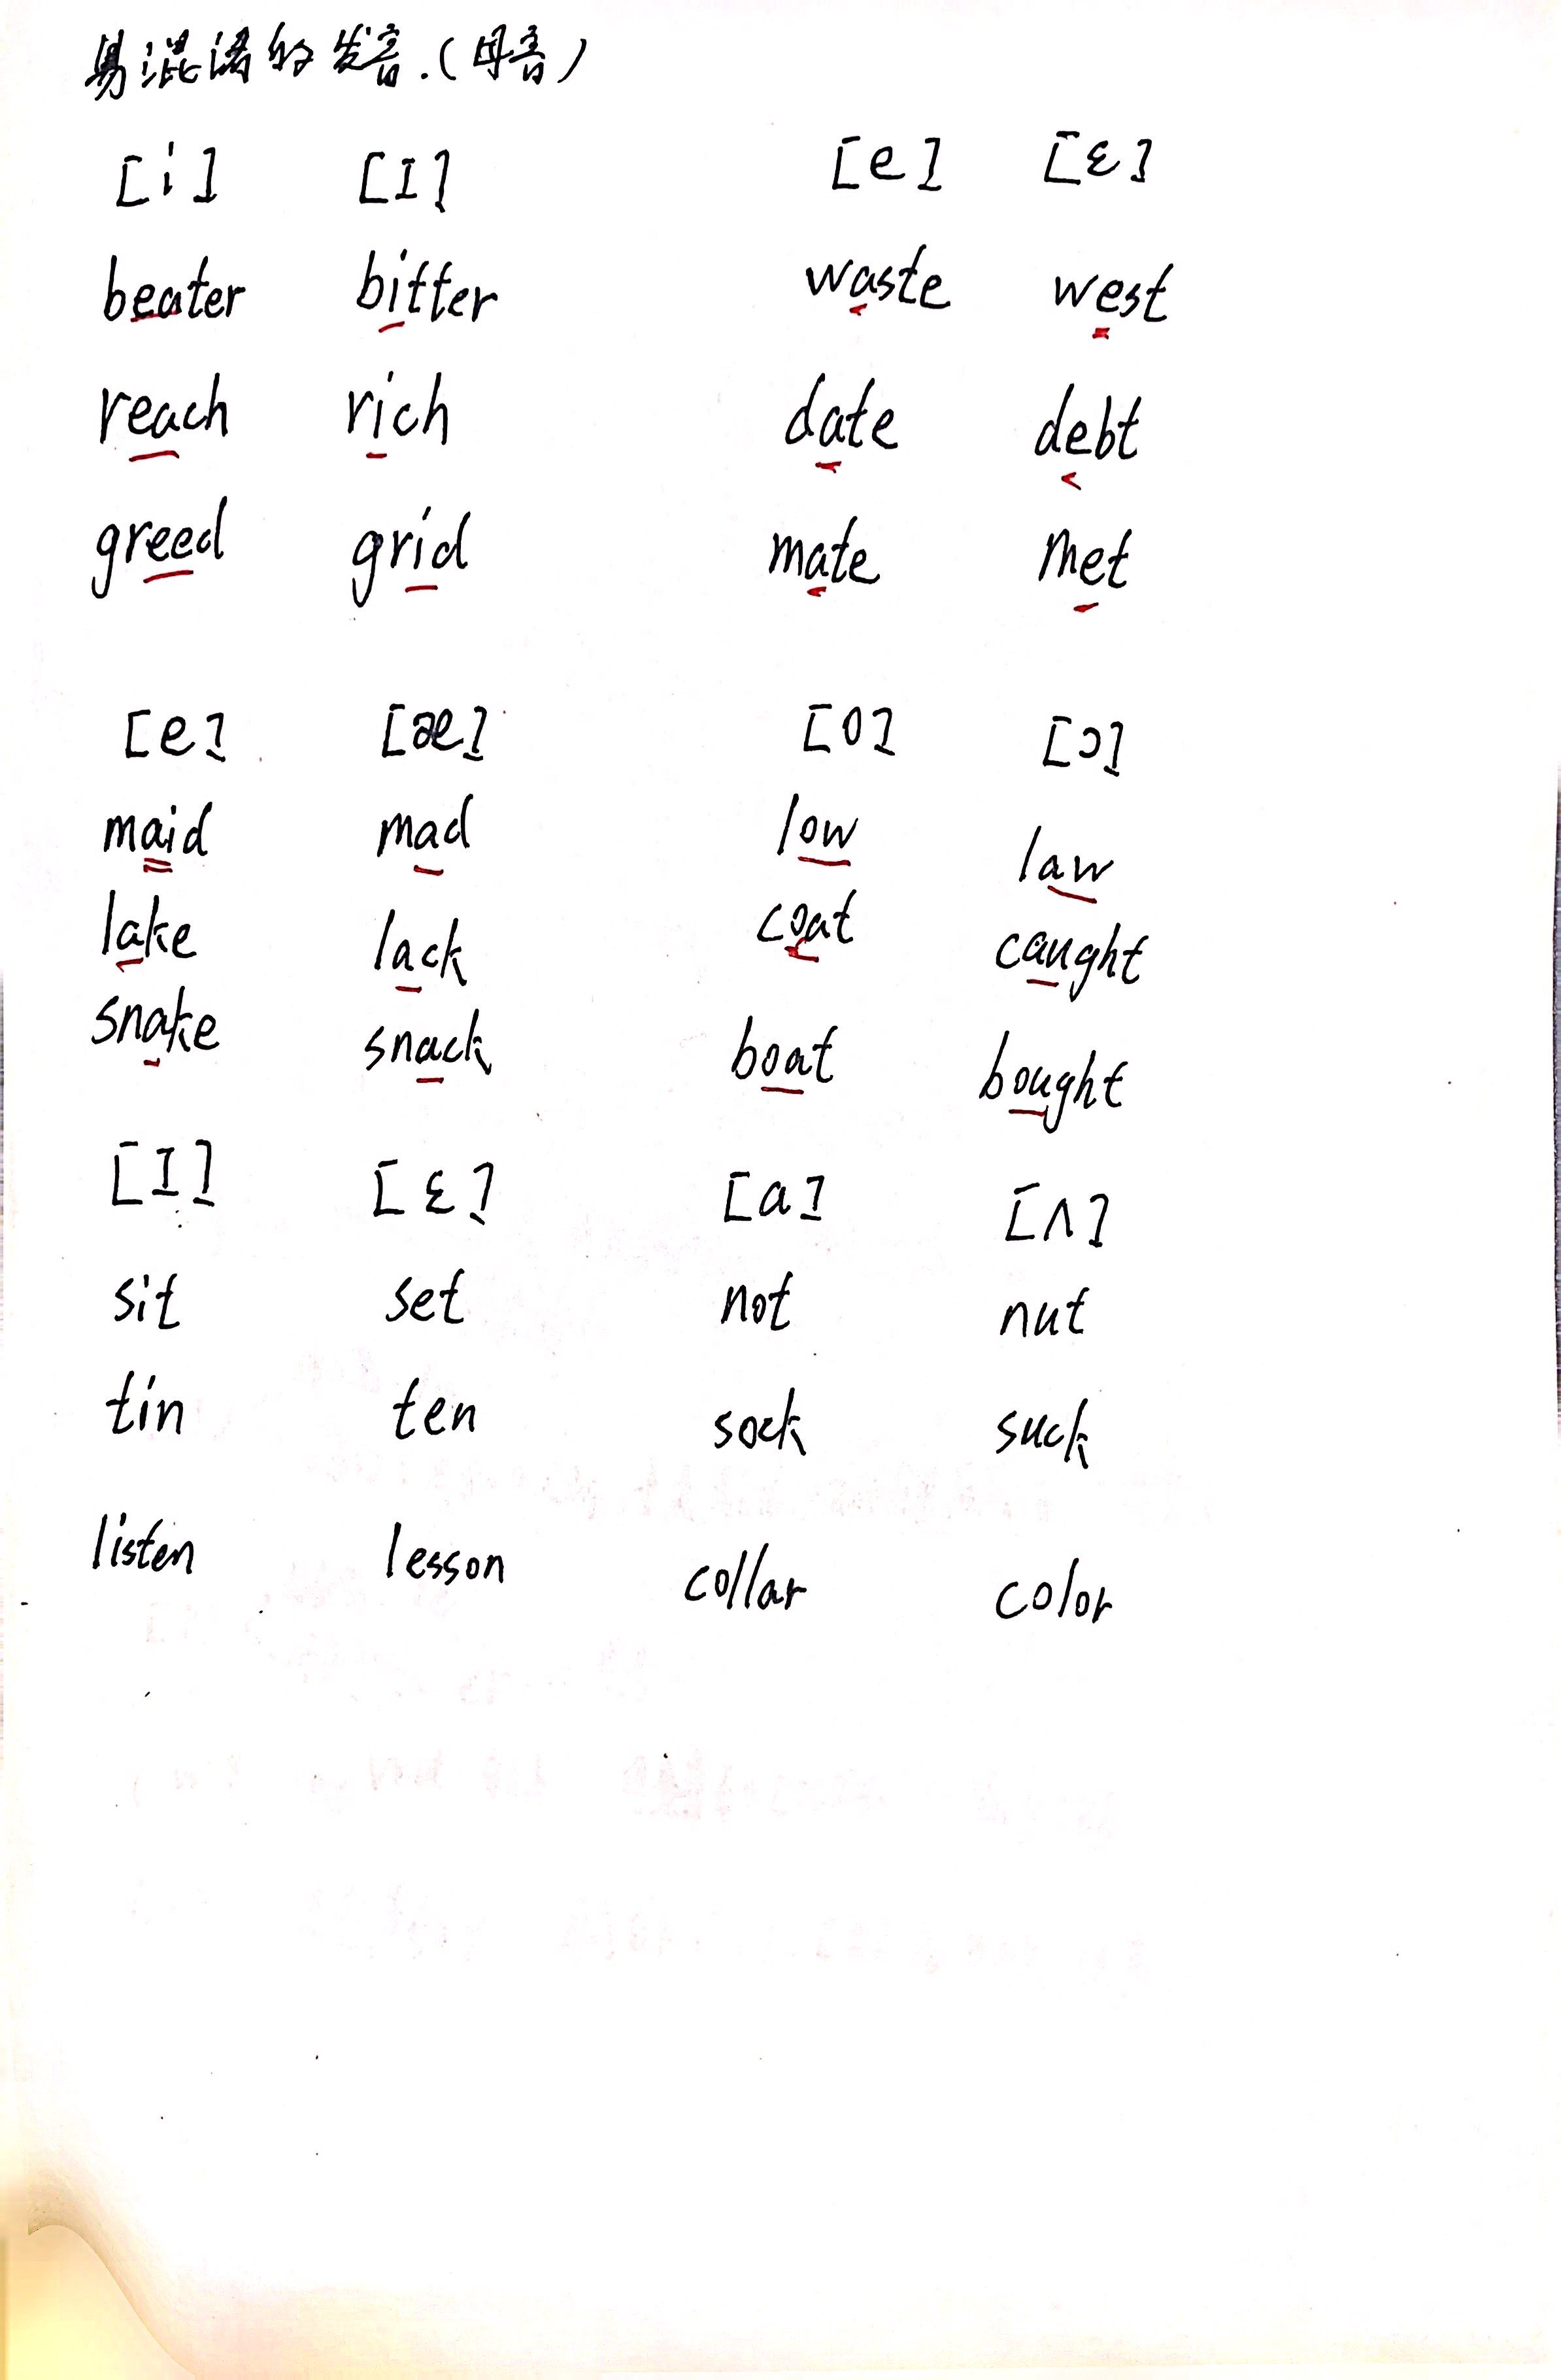 易混淆的发音.(母音)
[i] [I] [e] [ɛ]
beater bitter waste west
reach rich date debt
greed grid mate met
[e] [æ] [o] [ɔ]
maid mad low law
lake lack coat caught
snake snack boat bought
[I] [ɛ] [a] [ʌ]
sit set not nut
tin ten sock suck
listen lesson collar color